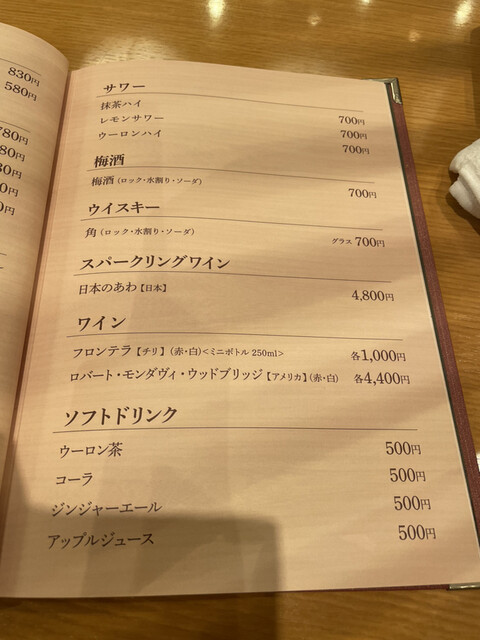 830円
580円
780円
80円
80円
0円
0円
サワー
抹茶ハイ 700円
レモンサワー 700円
ウーロンハイ 700円
梅酒
梅酒(ロック・水割り・ソーダ) 700円
ウイスキー
角(ロック・水割り・ソーダ) グラス 700円
スパークリングワイン
日本のあわ【日本】 4,800円
ワイン
フロンテラ【チリ】(赤・白)<ミニボトル 250ml> 各1,000円
ロバート・モンダヴィ・ウッドブリッジ【アメリカ】(赤・白) 各4,400円
ソフトドリンク
ウーロン茶 500円
コーラ 500円
ジンジャーエール 500円
アップルジュース 500円